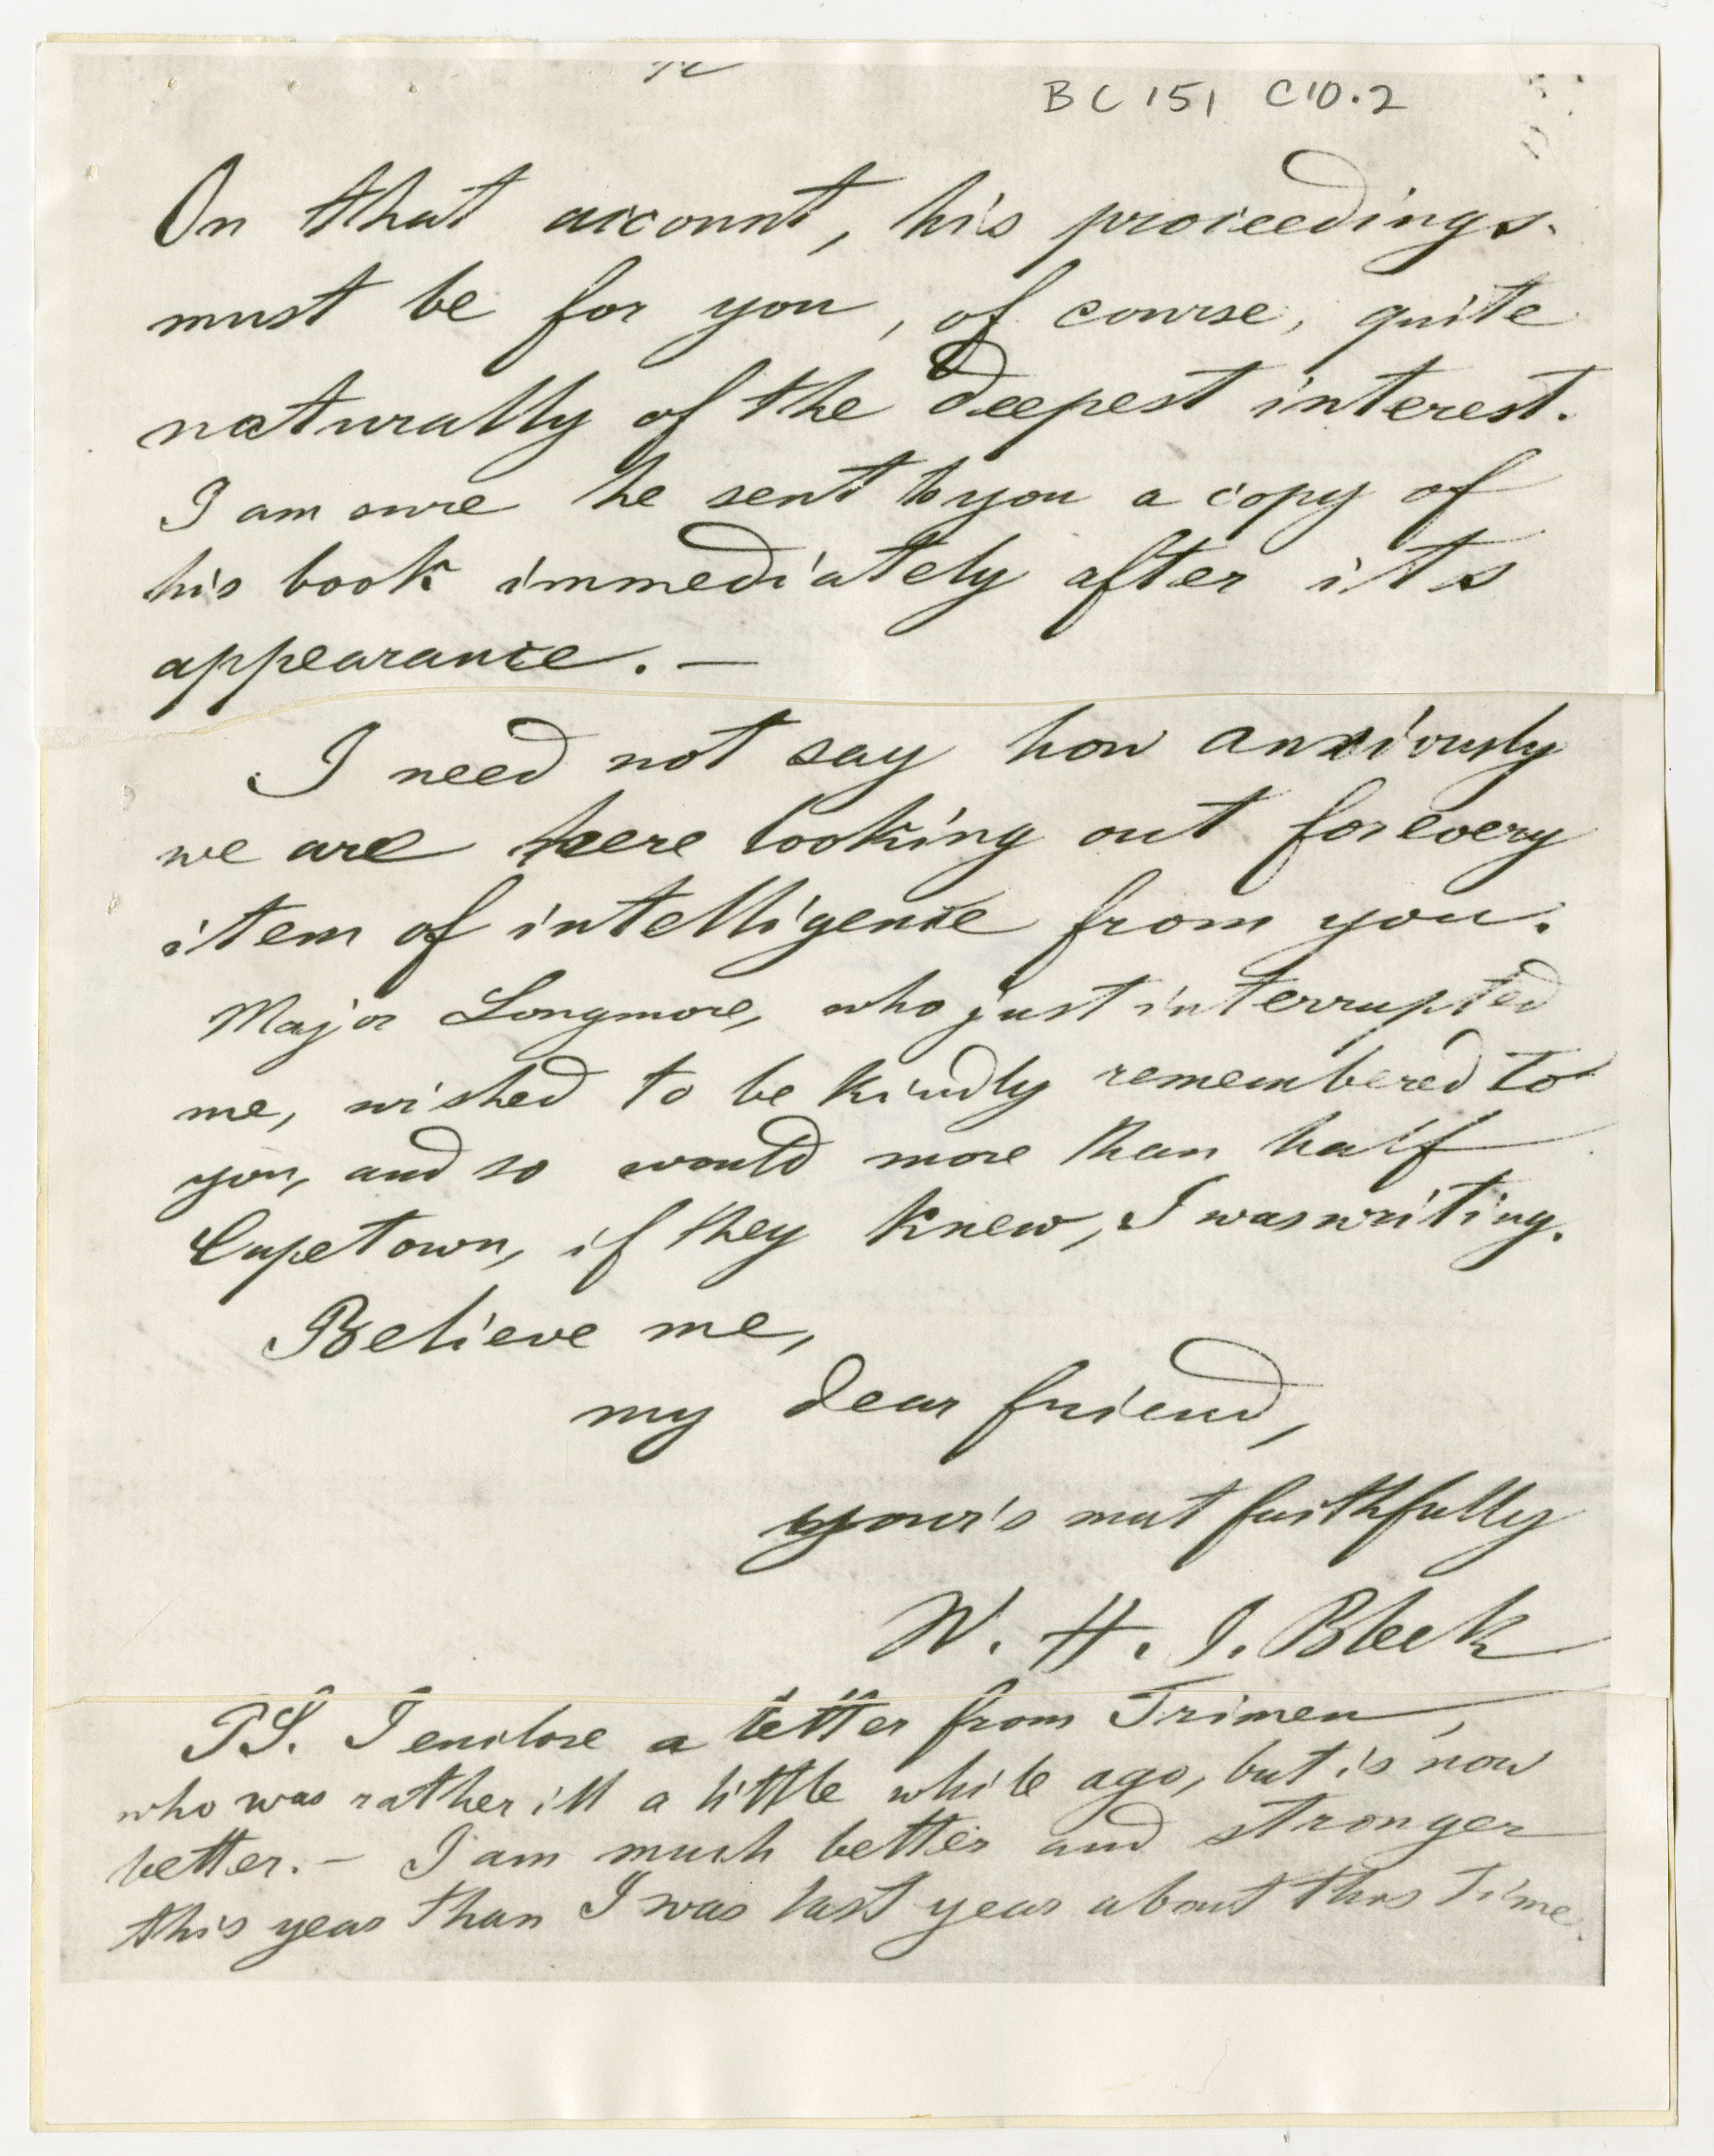 BC 151 C10.2
On that account, his proceedings
must be for you, of course, quite
naturally of the deepest interest.
I am sure he sent to you a copy of
his book immediately after its
appearance. —
I need not say how anxiously
we are here looking out for every
item of intelligence from you.
Major Longmore, who just interrupted
me, wished to be kindly remembered to
you, and so would more than half
Capetown, if they knew, I was writing.
Believe me,
my dear friend,
your's most faithfully
W. H. I. Bleek
PS. I enclose a letter from Trimen,
who was rather ill a little while ago, but is now
better. — I am much better and stronger
this year than I was last year about this time.